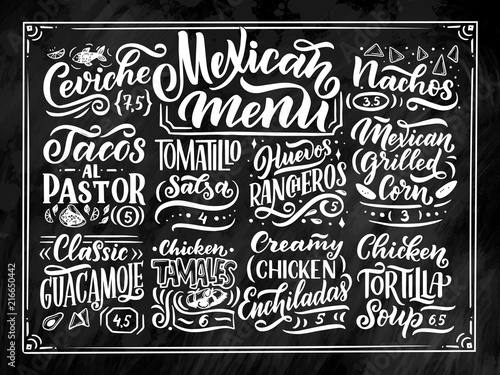 Mexican
menu
Ceviche
{7,5}
Nachos
3,5
Tacos
AL
PASTOR
5
TOMATILLO
Salsa
4
Huevos
RANCHEROS
5
Mexican
Grilled
Corn
3
Classic
GUACAMOLE
4,5
Chicken
TAMALES
6
Creamy
(CHICKEN)
Enchiladas
5
Chicken
TORTILLA
Soup 6,5
Adobe Stock | #216650442